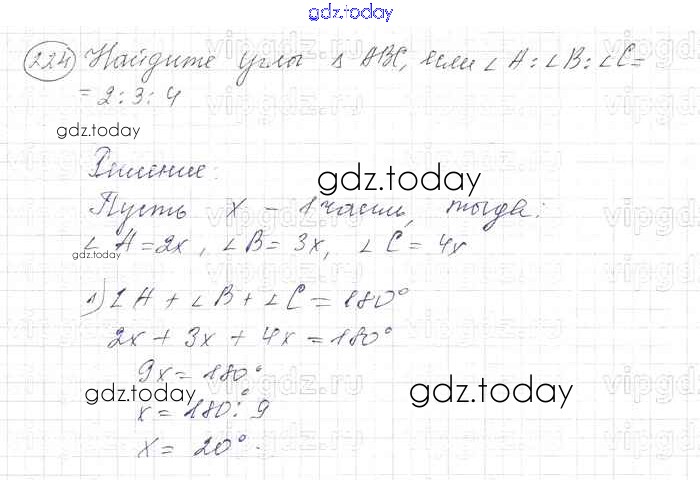 gdz.today
224 Найдите углы Δ ABC, если ∠A:∠B:∠C=
= 2:3:4
gdz.today
Решение:
gdz.today
Пусть x – 1 часть, тогда:
∠A=2x, ∠B=3x, ∠C=4x
gdz.today
1) ∠A+∠B+∠C=180°
2x+3x+4x=180°
9x=180°
gdz.today
gdz.today
x=180°:9
x=20°.